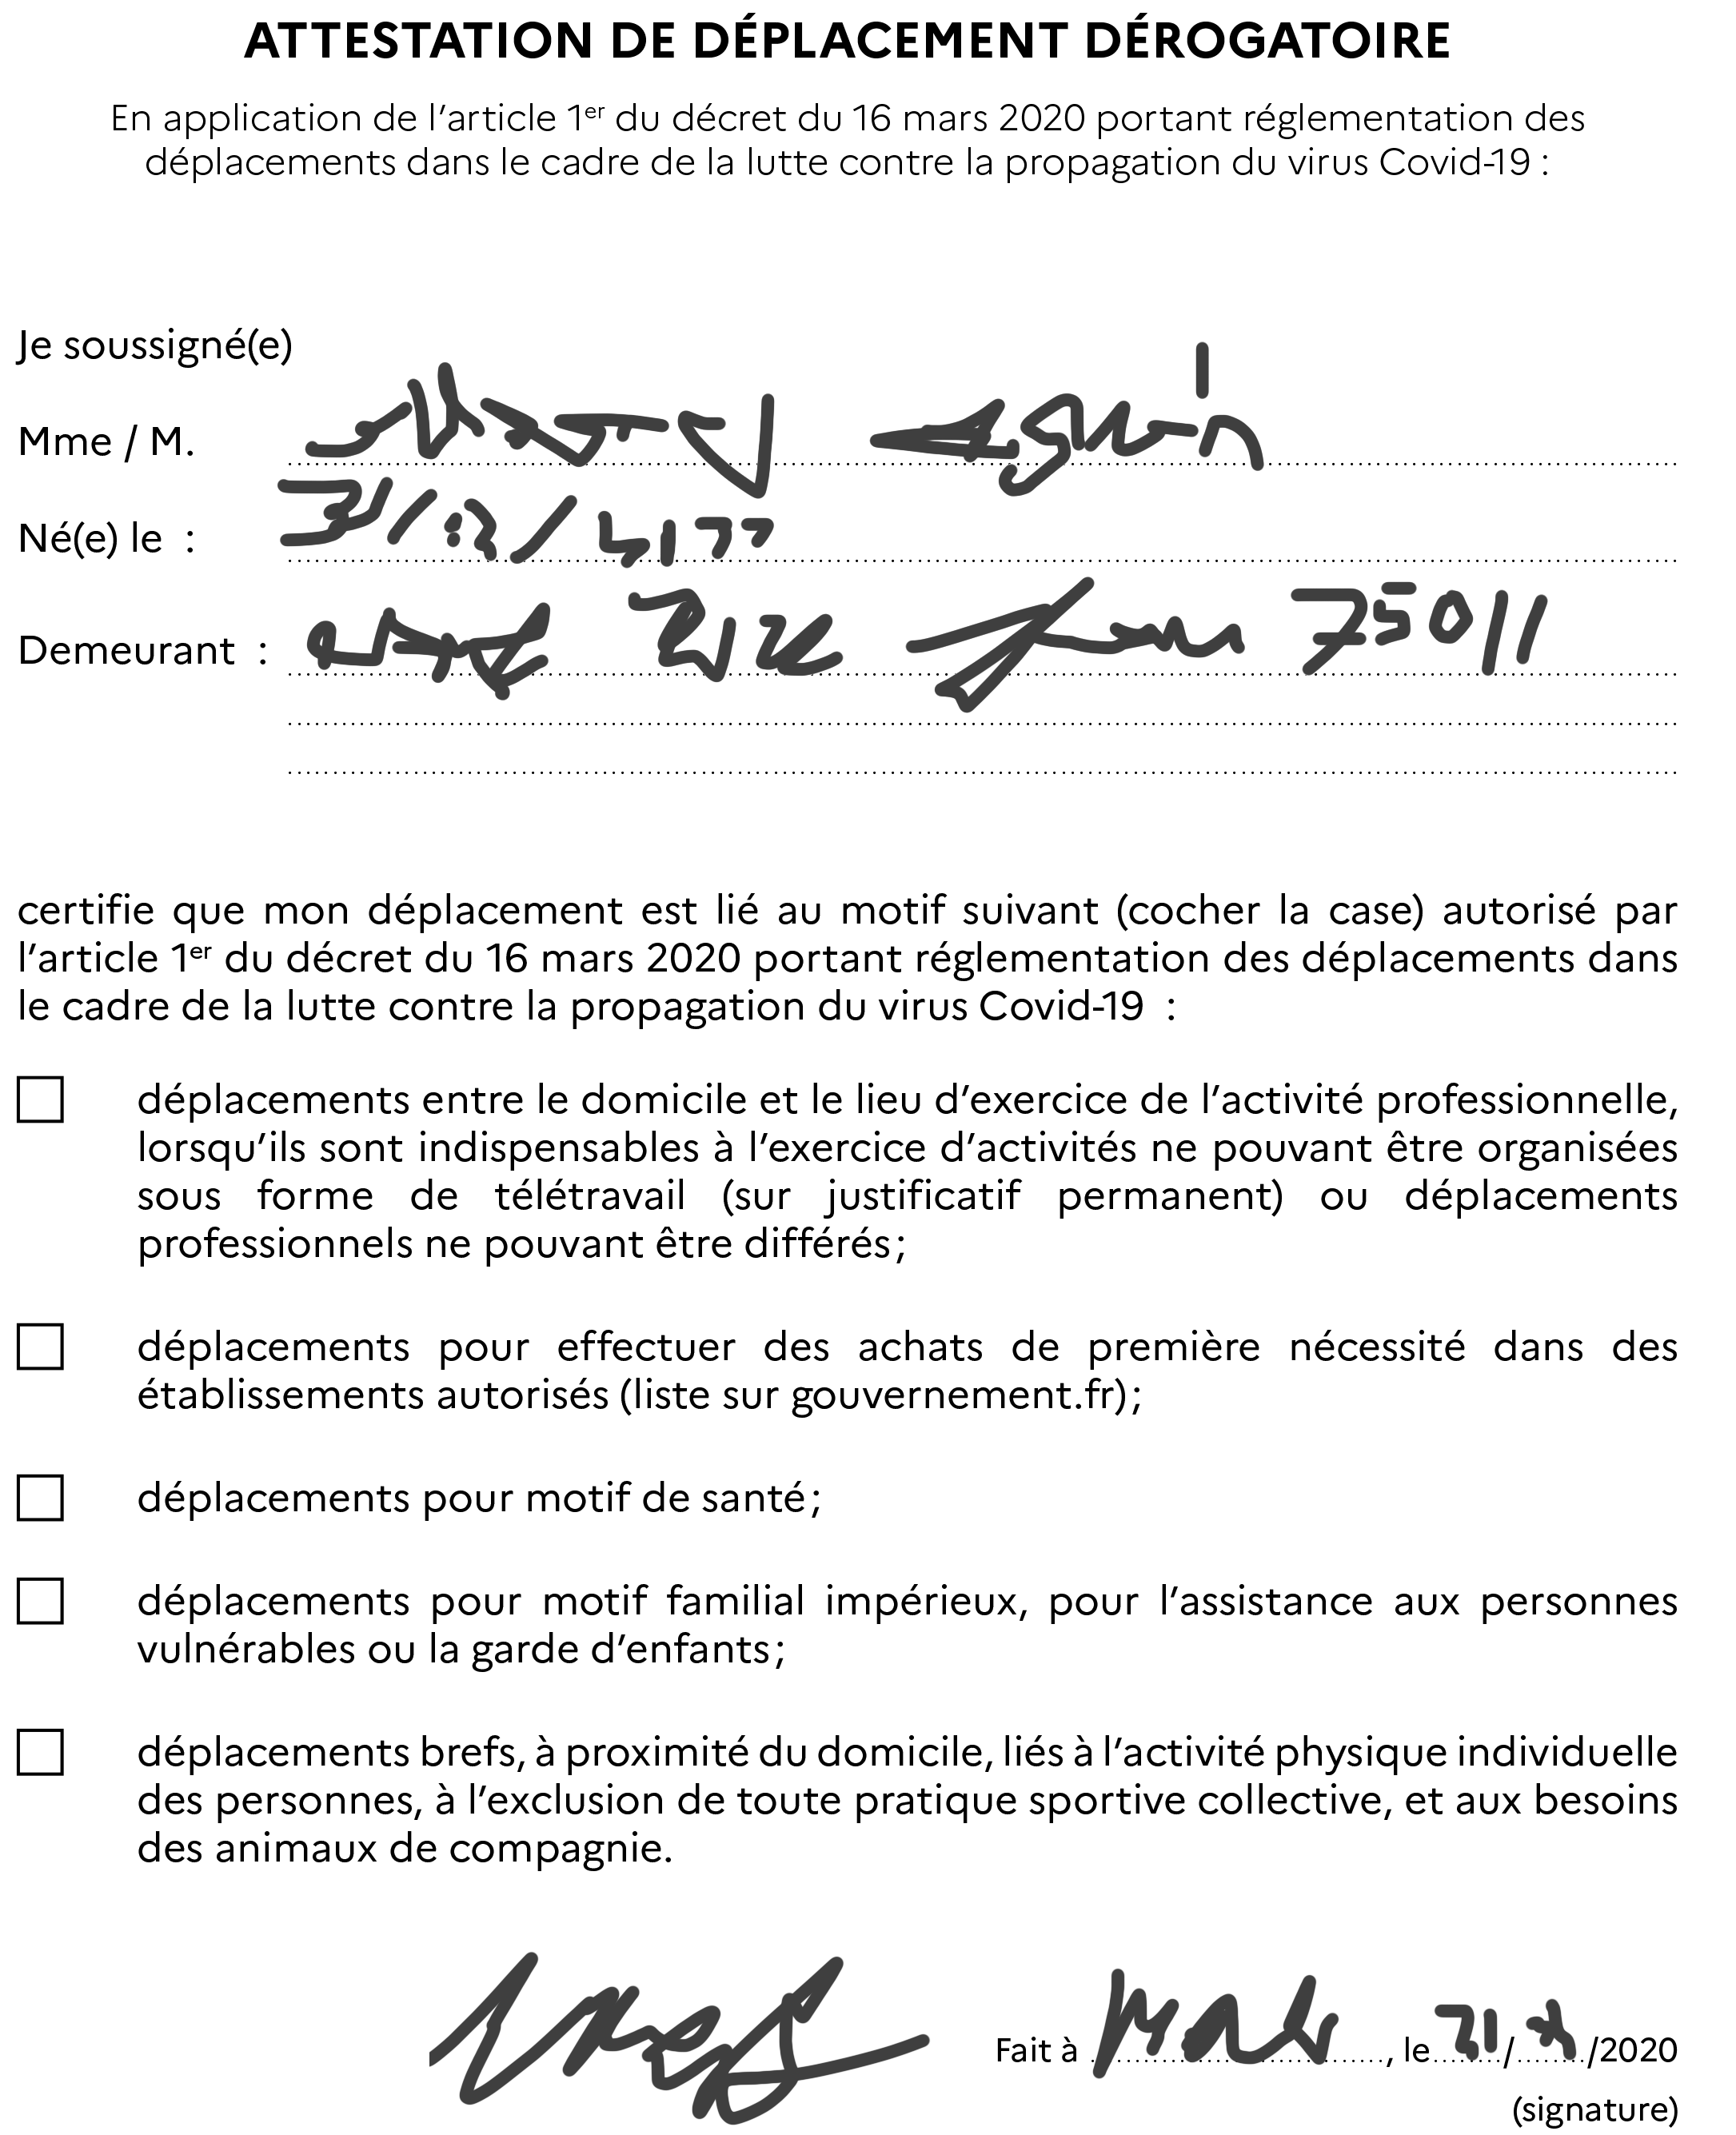 ATTESTATION DE DÉPLACEMENT DÉROGATOIRE
En application de l’article 1er du décret du 16 mars 2020 portant réglementation des
déplacements dans le cadre de la lutte contre la propagation du virus Covid-19 :
Je soussigné(e)
Mme / M.
Né(e) le :
Demeurant : 75011
certifie que mon déplacement est lié au motif suivant (cocher la case) autorisé par
l’article 1er du décret du 16 mars 2020 portant réglementation des déplacements dans
le cadre de la lutte contre la propagation du virus Covid-19 :
déplacements entre le domicile et le lieu d’exercice de l’activité professionnelle,
lorsqu’ils sont indispensables à l’exercice d’activités ne pouvant être organisées
sous forme de télétravail (sur justificatif permanent) ou déplacements
professionnels ne pouvant être différés ;
déplacements pour effectuer des achats de première nécessité dans des
établissements autorisés (liste sur gouvernement.fr) ;
déplacements pour motif de santé ;
déplacements pour motif familial impérieux, pour l’assistance aux personnes
vulnérables ou la garde d’enfants ;
déplacements brefs, à proximité du domicile, liés à l’activité physique individuelle
des personnes, à l’exclusion de toute pratique sportive collective, et aux besoins
des animaux de compagnie.
Fait à , le / /2020
(signature)